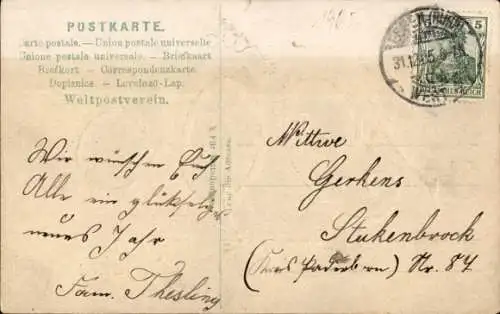 POSTKARTE.
Carte postale. — Union postale universelle
Unione postale universale. — Briefkaart
Brefkort. — Correspondenzkarte.
Dopisnice. — Levelező-Lap.
Weltpostverein.
5
31.12.05
Wir wünschen Euch
Alle ein glükseliges
neues Jahr
Fam. Thesling
Wittwe
Gerhens
Stukenbrock
(Kreis Paderborn) Nr. 87